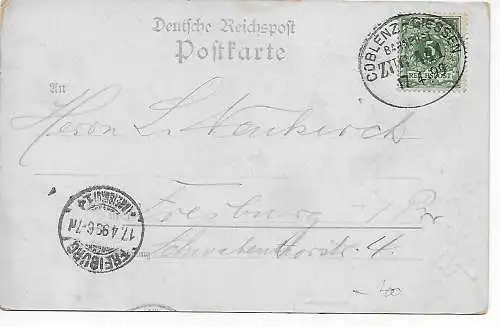 Deutsche Reichspost
Postkarte
COBLENZ-GIESSEN
BAHNPOST
ZUG
17.4.99
5
An
Herrn L. Neukirch
Freiburg i/Br
Schwabenthorstr. 4.
17.4.99.6-7N
FREIBURG